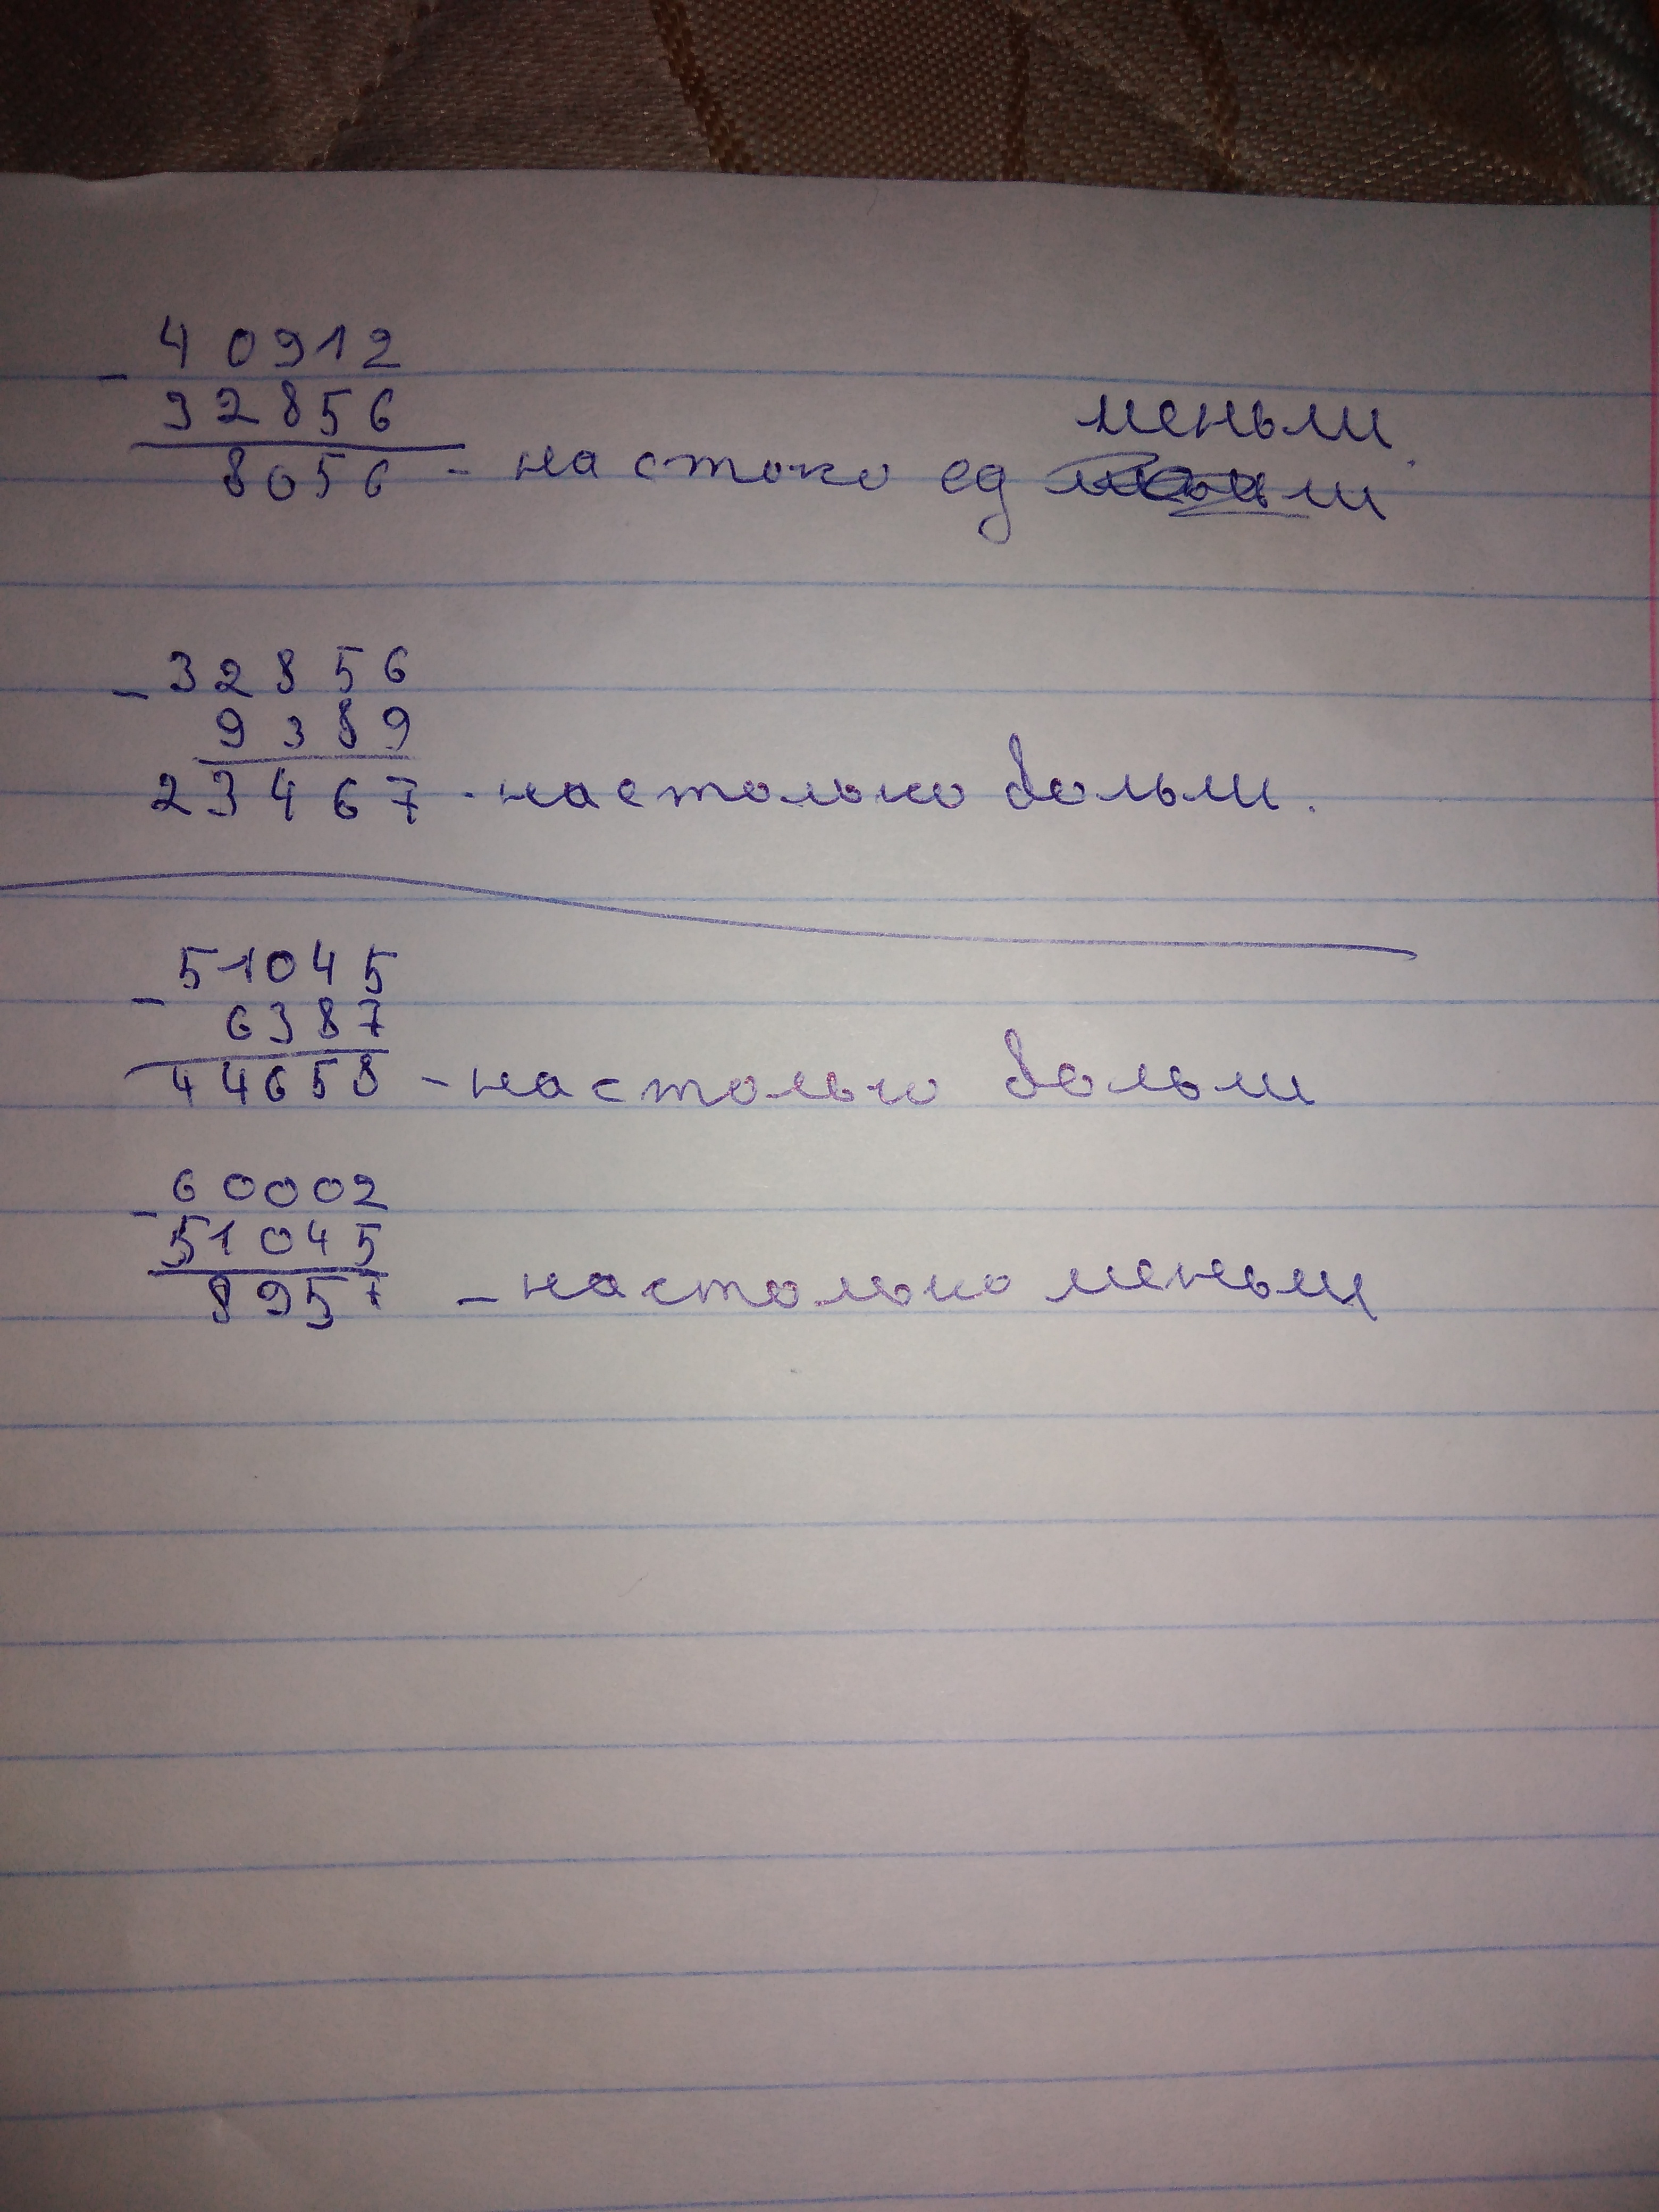 40912
- меньш
32856
8056 - на стоко ед
- 32856
9389
23467 - настолько больш.
51045
-
6387
44658 - настолько больш
60002
-
51045
8957 - настолько меньш